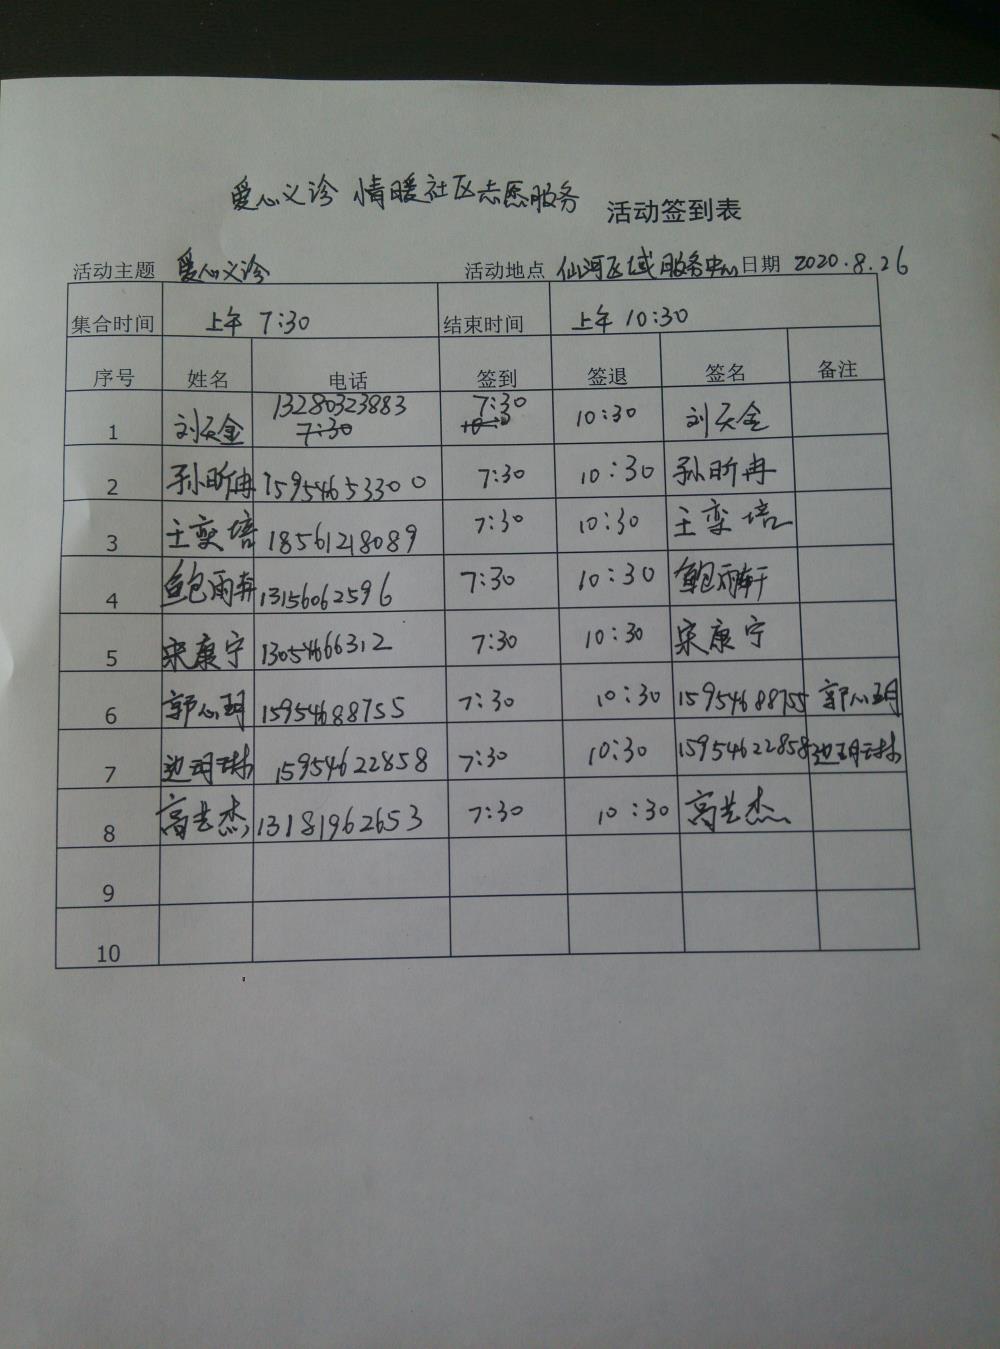 爱心义诊 情暖社区志愿服务 活动签到表
活动主题 爱心义诊 活动地点 仙河区域服务中心 日期 2020.8.26
集合时间 上午 7:30 结束时间 上午 10:30
序号 姓名 电话 签到 签退 签名 备注
1 刘天金 13280323883 7:30 10:30 刘天金
7:30
2 孙昕冉 15954653300 7:30 10:30 孙昕冉
3 王奕培 18561218089 7:30 10:30 王奕培
4 鲍雨轩 13156062596 7:30 10:30 鲍雨轩
5 宋康宁 13054666312 7:30 10:30 宋康宁
6 郭心玥 15954688755 7:30 10:30 15954688755 郭心玥
7 边玥琳 15954622858 7:30 10:30 15954622858 边玥琳
8 高艺杰 13181962653 7:30 10:30 高艺杰
9
10